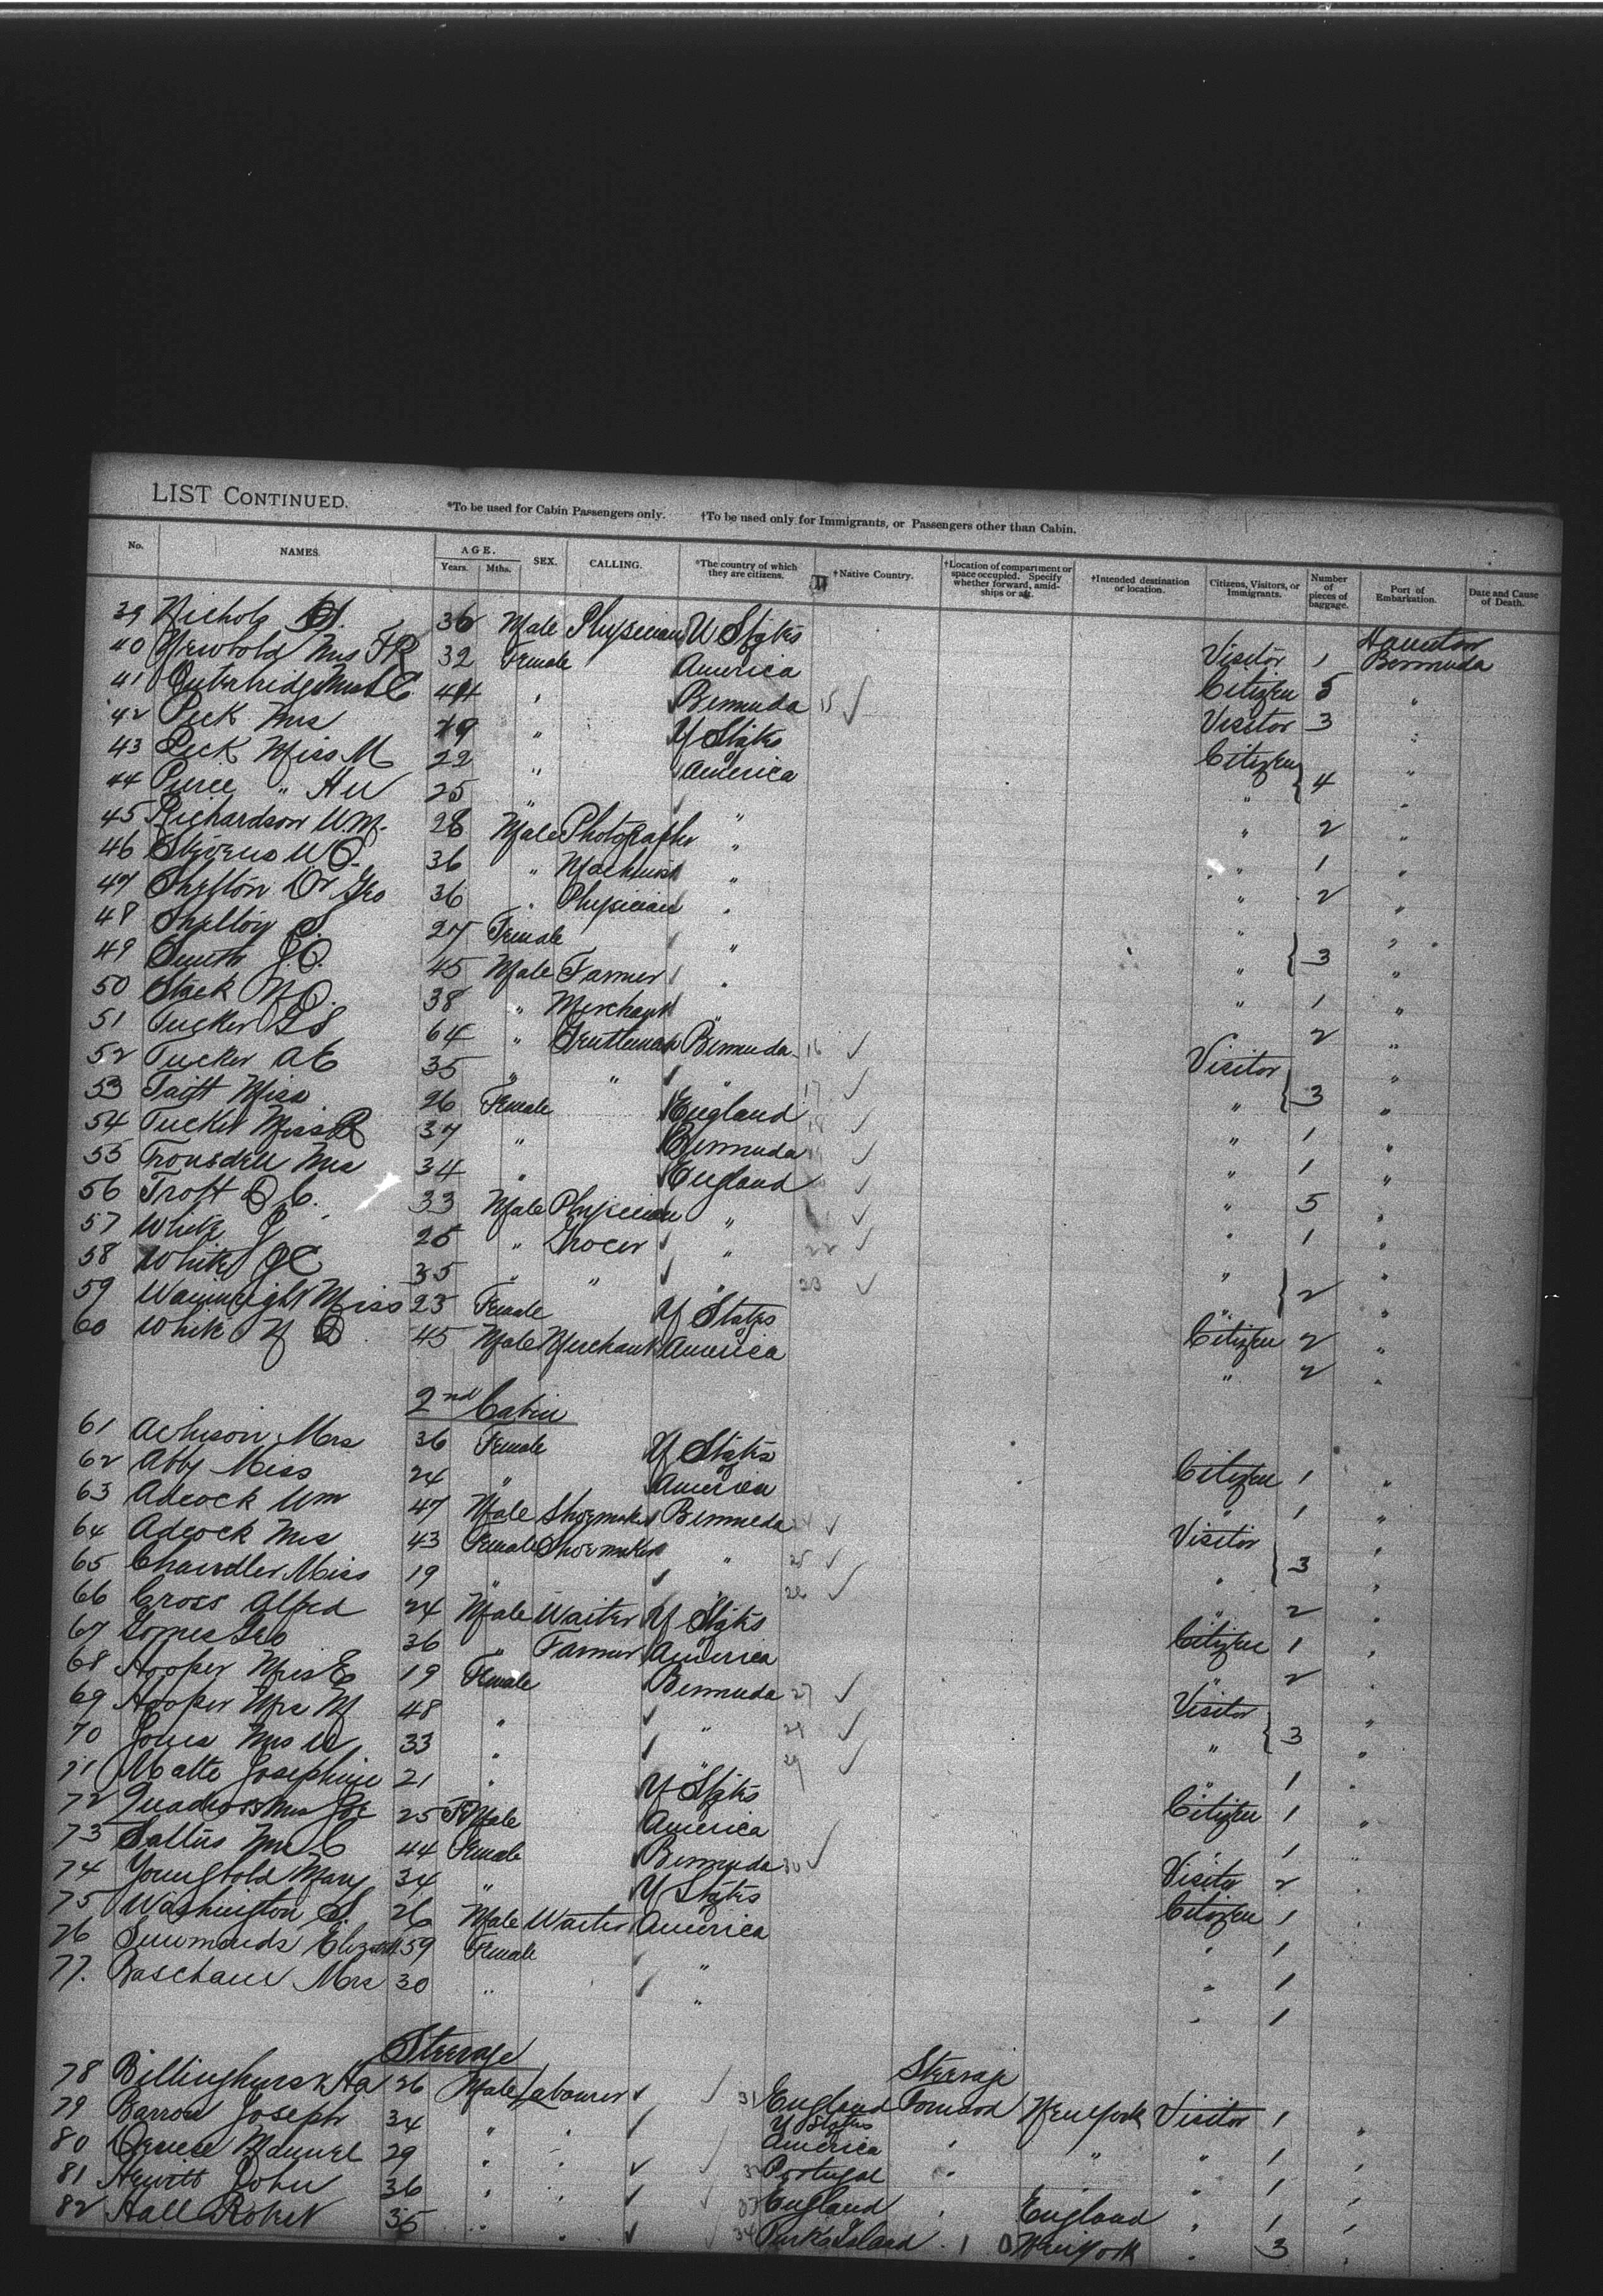 LIST CONTINUED.
*To be used for Cabin Passengers only. †To be used only for Immigrants, or Passengers other than Cabin.
No. NAMES. AGE. Years. Mths. SEX. CALLING. *The country of which they are citizens. †Native Country. †Location of compartment or space occupied. Specify whether forward, amid-ships or aft. †Intended destination or location. Citizens, Visitors, or Immigrants. Number of pieces of baggage. Port of Embarkation. Date and Cause of Death.
39 Nichols H. 36 Male Physician U States Visitor 1 Hamilton Bermuda
40 Newbold Mrs F R 32 Female America Citizen 5 "
41 Outerbridge 44 " Bermuda 15 Visitor 3 "
42 Peck Mrs 49 " U States Citizen "
43 Peck Miss M 22 " America " 4 "
44 Pierce " H W 25 " " " 2 "
45 Richardson W.M. 28 Male Photographer " " 1 "
46 Stevens W.O. 36 " Machinist " " 2 "
47 Shelton Dr Geo 36 " Physician " " "
48 Shelton S. 27 Female " " 3 "
49 Smith J.O. 45 Male Farmer " " 1 "
50 38 " Merchant " 2 "
51 Tucker 64 " Gentleman Bermuda 16 Visitor "
52 Tucker A E 35 " " " 17 " 3 "
53 Taitt Miss 26 Female England 18 " 1 "
54 Tucker Miss R 37 " Bermuda " 1 "
55 Trousdell Mrs 34 " England " 5 "
56 Trott 33 Male Physician " " 1 "
57 White J 25 " Grocer " 22 " "
58 White J C 35 " " " 23 " 2 "
59 Wainwright Miss 23 Female U States Citizen 2 "
60 White 45 Male Merchant America " 2 "
2nd Cabin
61 Acheson Mrs 36 Female U States Citizen 1 "
62 Abby Miss 24 " America " 1 "
63 Adcock Wm 47 Male Shoemaker Bermuda 24 Visitor "
64 Adcock Mrs 43 Female Shoemaker " 25 " 3 "
65 Chandler Miss 19 " " 26 " 2 "
66 Cross Alfred 24 Male Waiter U States Citizen 1 "
67 Gomes Geo 36 " Farmer America " 2 "
68 Hooper Miss E 19 Female Bermuda 27 Visitor "
69 Hooper Mrs M 48 " " 28 " 3 "
70 Jones Mrs W 33 " " 29 " 1 "
71 Matte Josephine 21 " U States Citizen 1 "
72 Quadros Mrs Joe 25 Female America " 1 "
73 Saltus 44 Female Bermuda 30 Visitor 2 "
74 Youngbold Mary 34 " U States Citizen 1 "
75 Washington S. 26 Male Waiter America " 1
76 Simmonds 59 Female " " 1
77. Baschane Mrs 30 " " " 1
Steerage
Steerage
78 Billinghurst 26 Male Labourer 31 England Forward New York Visitor 1 "
79 Barron Joseph 34 " " U States America " " " 1 "
80 Manuel 29 " " Portugal " " 1 "
81 Hewitt John 36 " " 33 England " England " 1 "
82 Hall Robert 35 " " 34 Turks Island " New York " 3 "